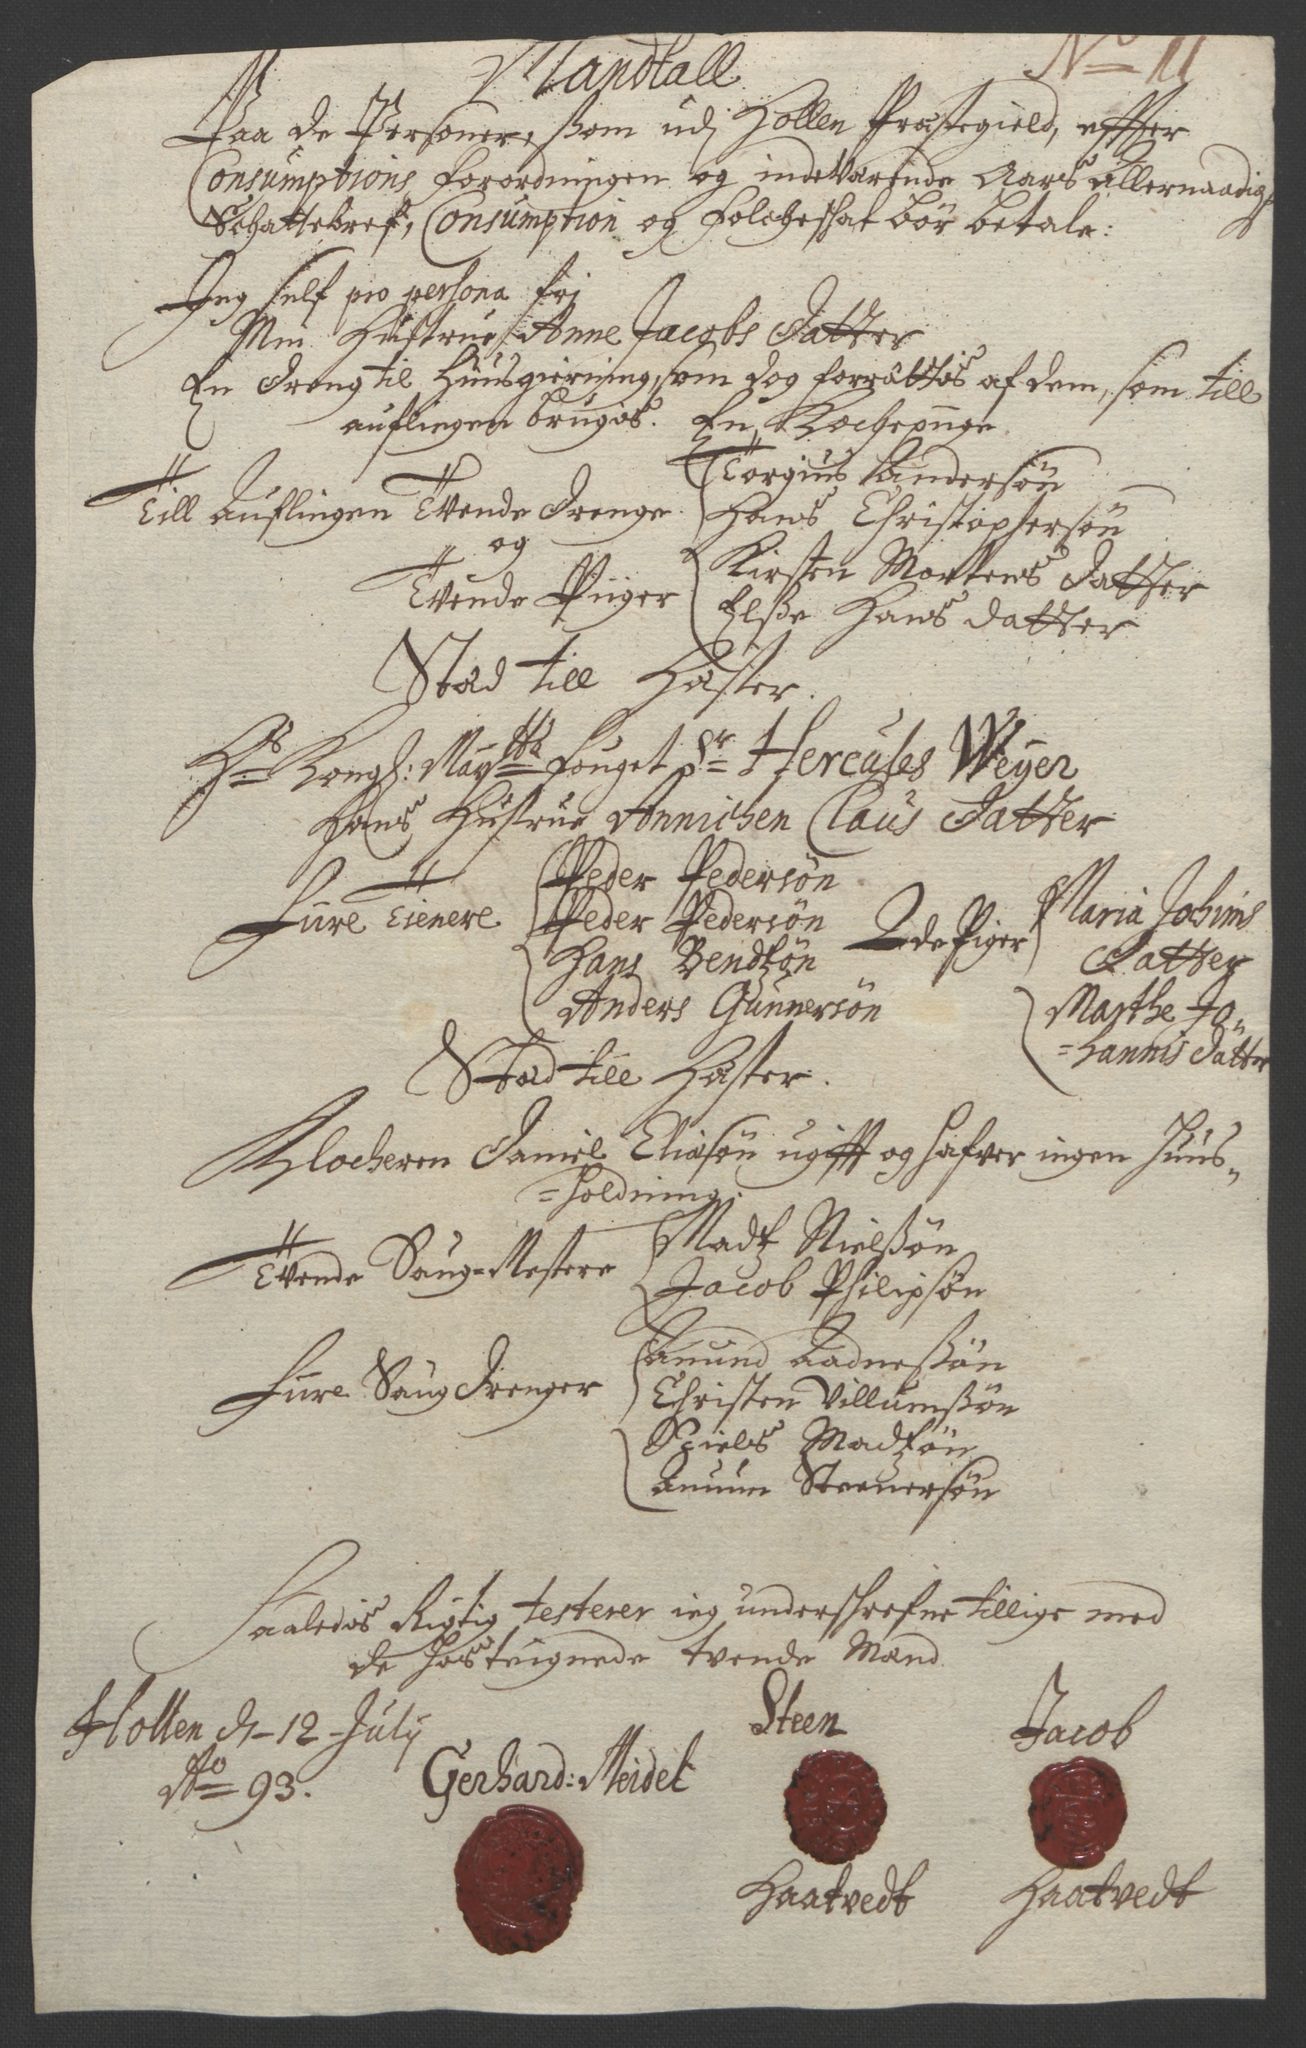 No 11
Mandtall
Paa de Personer, som udj Hollen Præstegield, effter
Consumptions forordningen og indeVærende Aars allernaadigst
Schattebref, Consumption og folcheschat bör betale:
Jeg self pro persona frj
Min Hustrue Anne Jacobs Datter
En dreng til Huusgierning, som dog forrættis af dem, som till
auflingen brugis. En Kochepige
Till Auflingen Tvende Drenge
Torgius Andersön
Hans Christophersön
og
Tvende Piiger
Kirsten Mortens Datter
Elsse Hans datter
Stad till Hæster.
Hs Kongl: Maytts fouget Sr Hercules Weyer
Hans Hustrue Annichen Claus Datter
Fiire Tienere
Peder Pedersön
Peder Pedersön
Hans Bendtzön
Anders Gunnersön
2de Piger
Maria Jochims
Datter
Marthe Jo,,
=hannis Datter
Stad till Hæster.
Klocheren Daniel Eliasön ugifft og hafver ingen Huus,,
=holdning.
Tvende Saug=Mestere
Madtz Nielssön
Jacob Philipsön
Fiire Saug Drenger
Anund Aadnessön
Christen Villumssön
Niels Madtzön
Anuun Steenersön
Saaledis Rigtig testerer ieg underschrefne tillige med
de hosteignede tvende Mænd
Hollen d. 12 July
Ao 93.
Gerhard: Meidel
Steen
Haatvedt
Jacob
Haatvedt